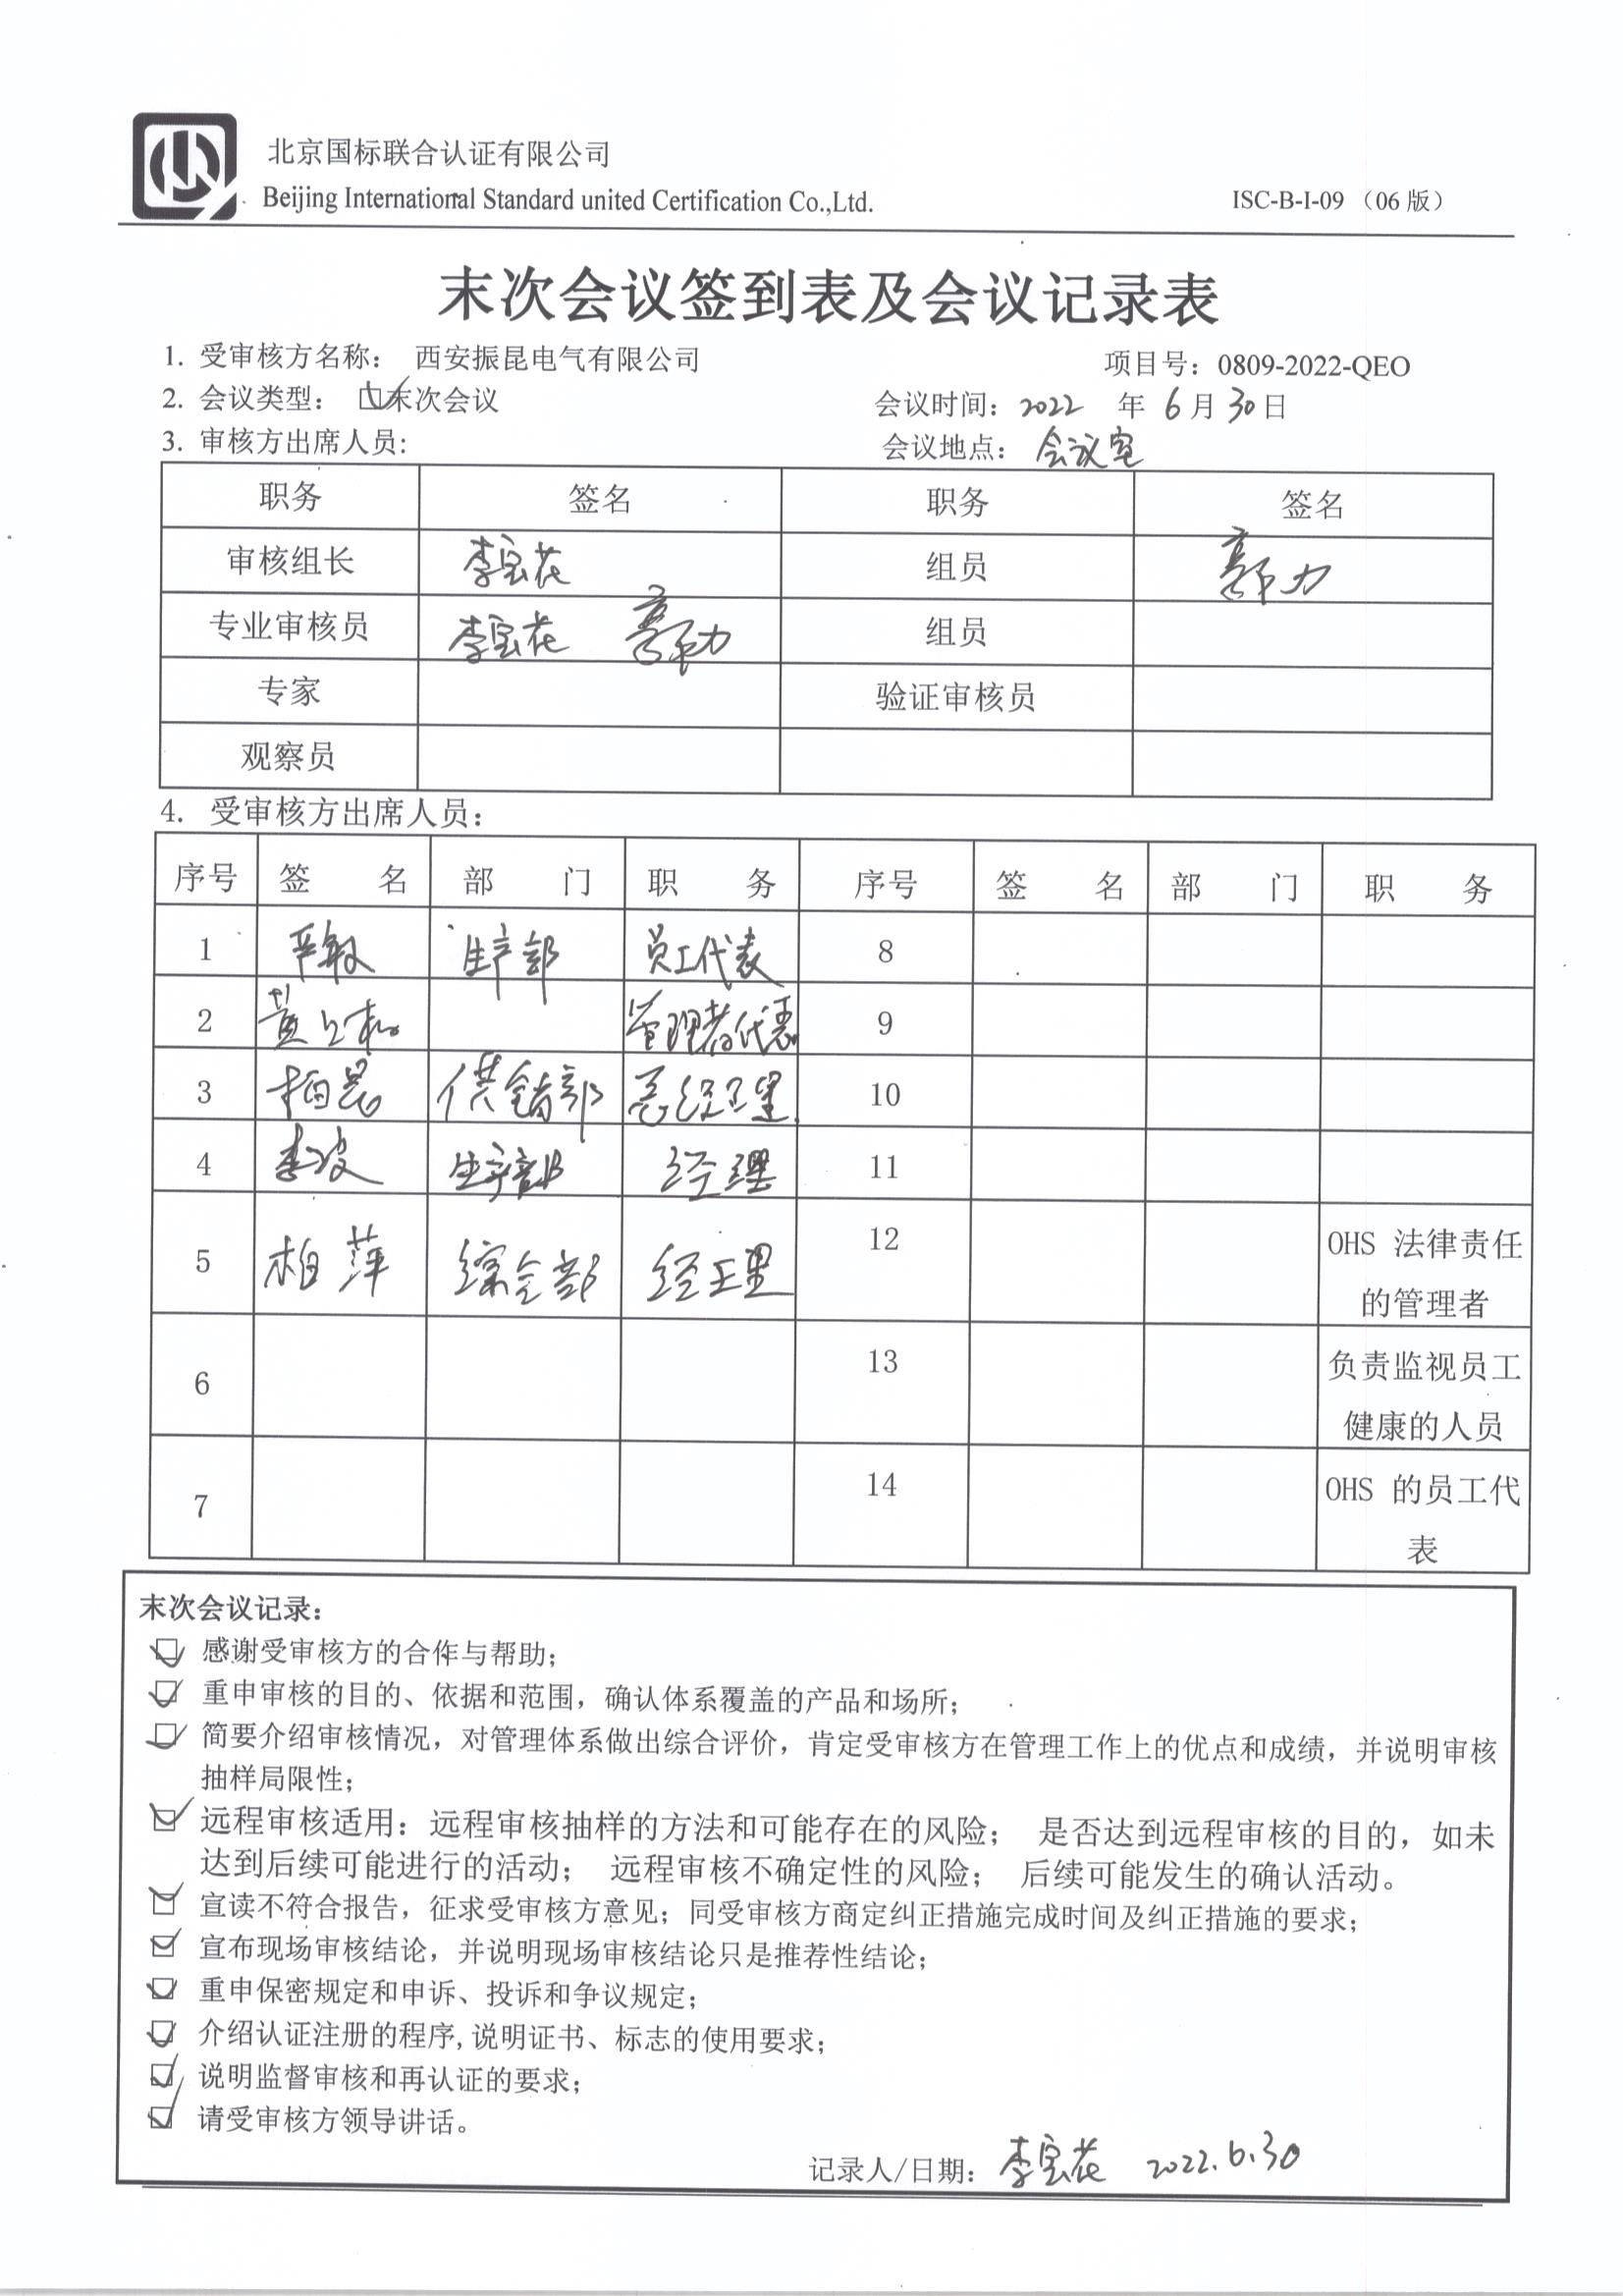 北京国标联合认证有限公司
Beijing International Standard united Certification Co.,Ltd.
ISC-B-I-09 （06 版）
末次会议签到表及会议记录表
1. 受审核方名称： 西安振昆电气有限公司 项目号：0809-2022-QEO
2. 会议类型： 末次会议 会议时间：2022 年 6 月 30 日
3. 审核方出席人员: 会议地点： 会议室
职务 签名 职务 签名
审核组长 李宝花 组员 郭力
专业审核员 李宝花 郭力 组员
专家 验证审核员
观察员
4. 受审核方出席人员：
序号 签 名 部 门 职 务 序号 签 名 部 门 职 务
1 生产部 员工代表 8
2 管理者代表 9
3 柏晨 供销部 总经理 10
4 李波 生产部 经理 11
5 柏萍 综合部 经理 12 OHS 法律责任
的管理者
6 13 负责监视员工
健康的人员
7 14 OHS 的员工代
表
末次会议记录：
感谢受审核方的合作与帮助；
重申审核的目的、依据和范围，确认体系覆盖的产品和场所；
简要介绍审核情况，对管理体系做出综合评价，肯定受审核方在管理工作上的优点和成绩，并说明审核
抽样局限性；
远程审核适用：远程审核抽样的方法和可能存在的风险； 是否达到远程审核的目的，如未
达到后续可能进行的活动； 远程审核不确定性的风险； 后续可能发生的确认活动。
宣读不符合报告，征求受审核方意见；同受审核方商定纠正措施完成时间及纠正措施的要求；
宣布现场审核结论，并说明现场审核结论只是推荐性结论；
重申保密规定和申诉、投诉和争议规定；
介绍认证注册的程序,说明证书、标志的使用要求；
说明监督审核和再认证的要求；
请受审核方领导讲话。
记录人/日期： 李宝花 2022.6.30